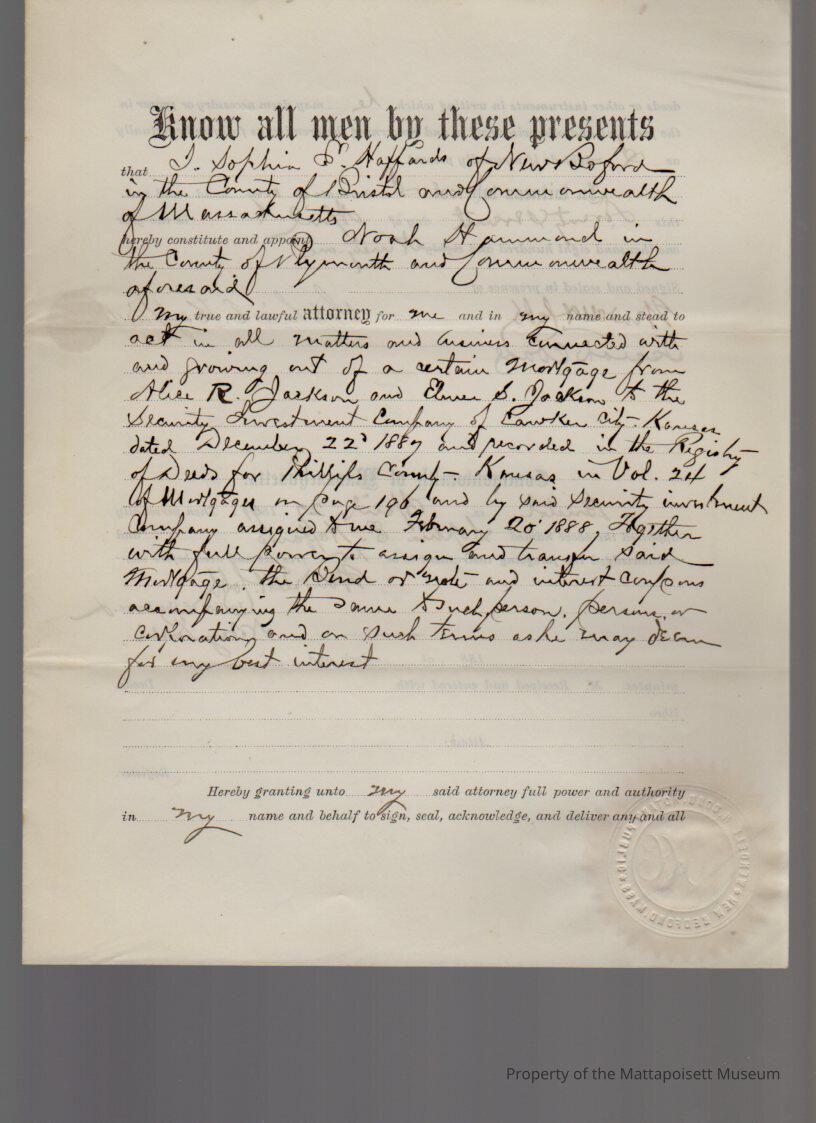 Know all men by these presents
that I. Sophia F. Haffards of New Beford
in the County of Bristol and Commonwealth
of Massachusetts
hereby constitute and appoint Noah Hammond in
the County of Plymouth and Commonwealth
aforesaid
my true and lawful attorney for me and in my name and stead to
act in all matters and business connected with
and growing out of a certain Mortgage from
Alice R. Jackson and Elmer S. Jackson to the
Security Investment Company of Cawker City - Kansas
dated December 22d 1887 and recorded in the Registry
of Deeds for Phillips County - Kansas in Vol. 24
of Mortgages on page 196 and by said Security investment
Company assigned to me February 20' 1888, Together
with full power to assign and transfer said
Mortgage, the bond or note and interest coupons
accompanying the same to such person, persons, or
corporation, and on such terms as he may deem
for my best interest
Hereby granting unto my said attorney full power and authority
in my name and behalf to sign, seal, acknowledge, and deliver any and all
NEW BEDFORD, MASS
Property of the Mattapoisett Museum